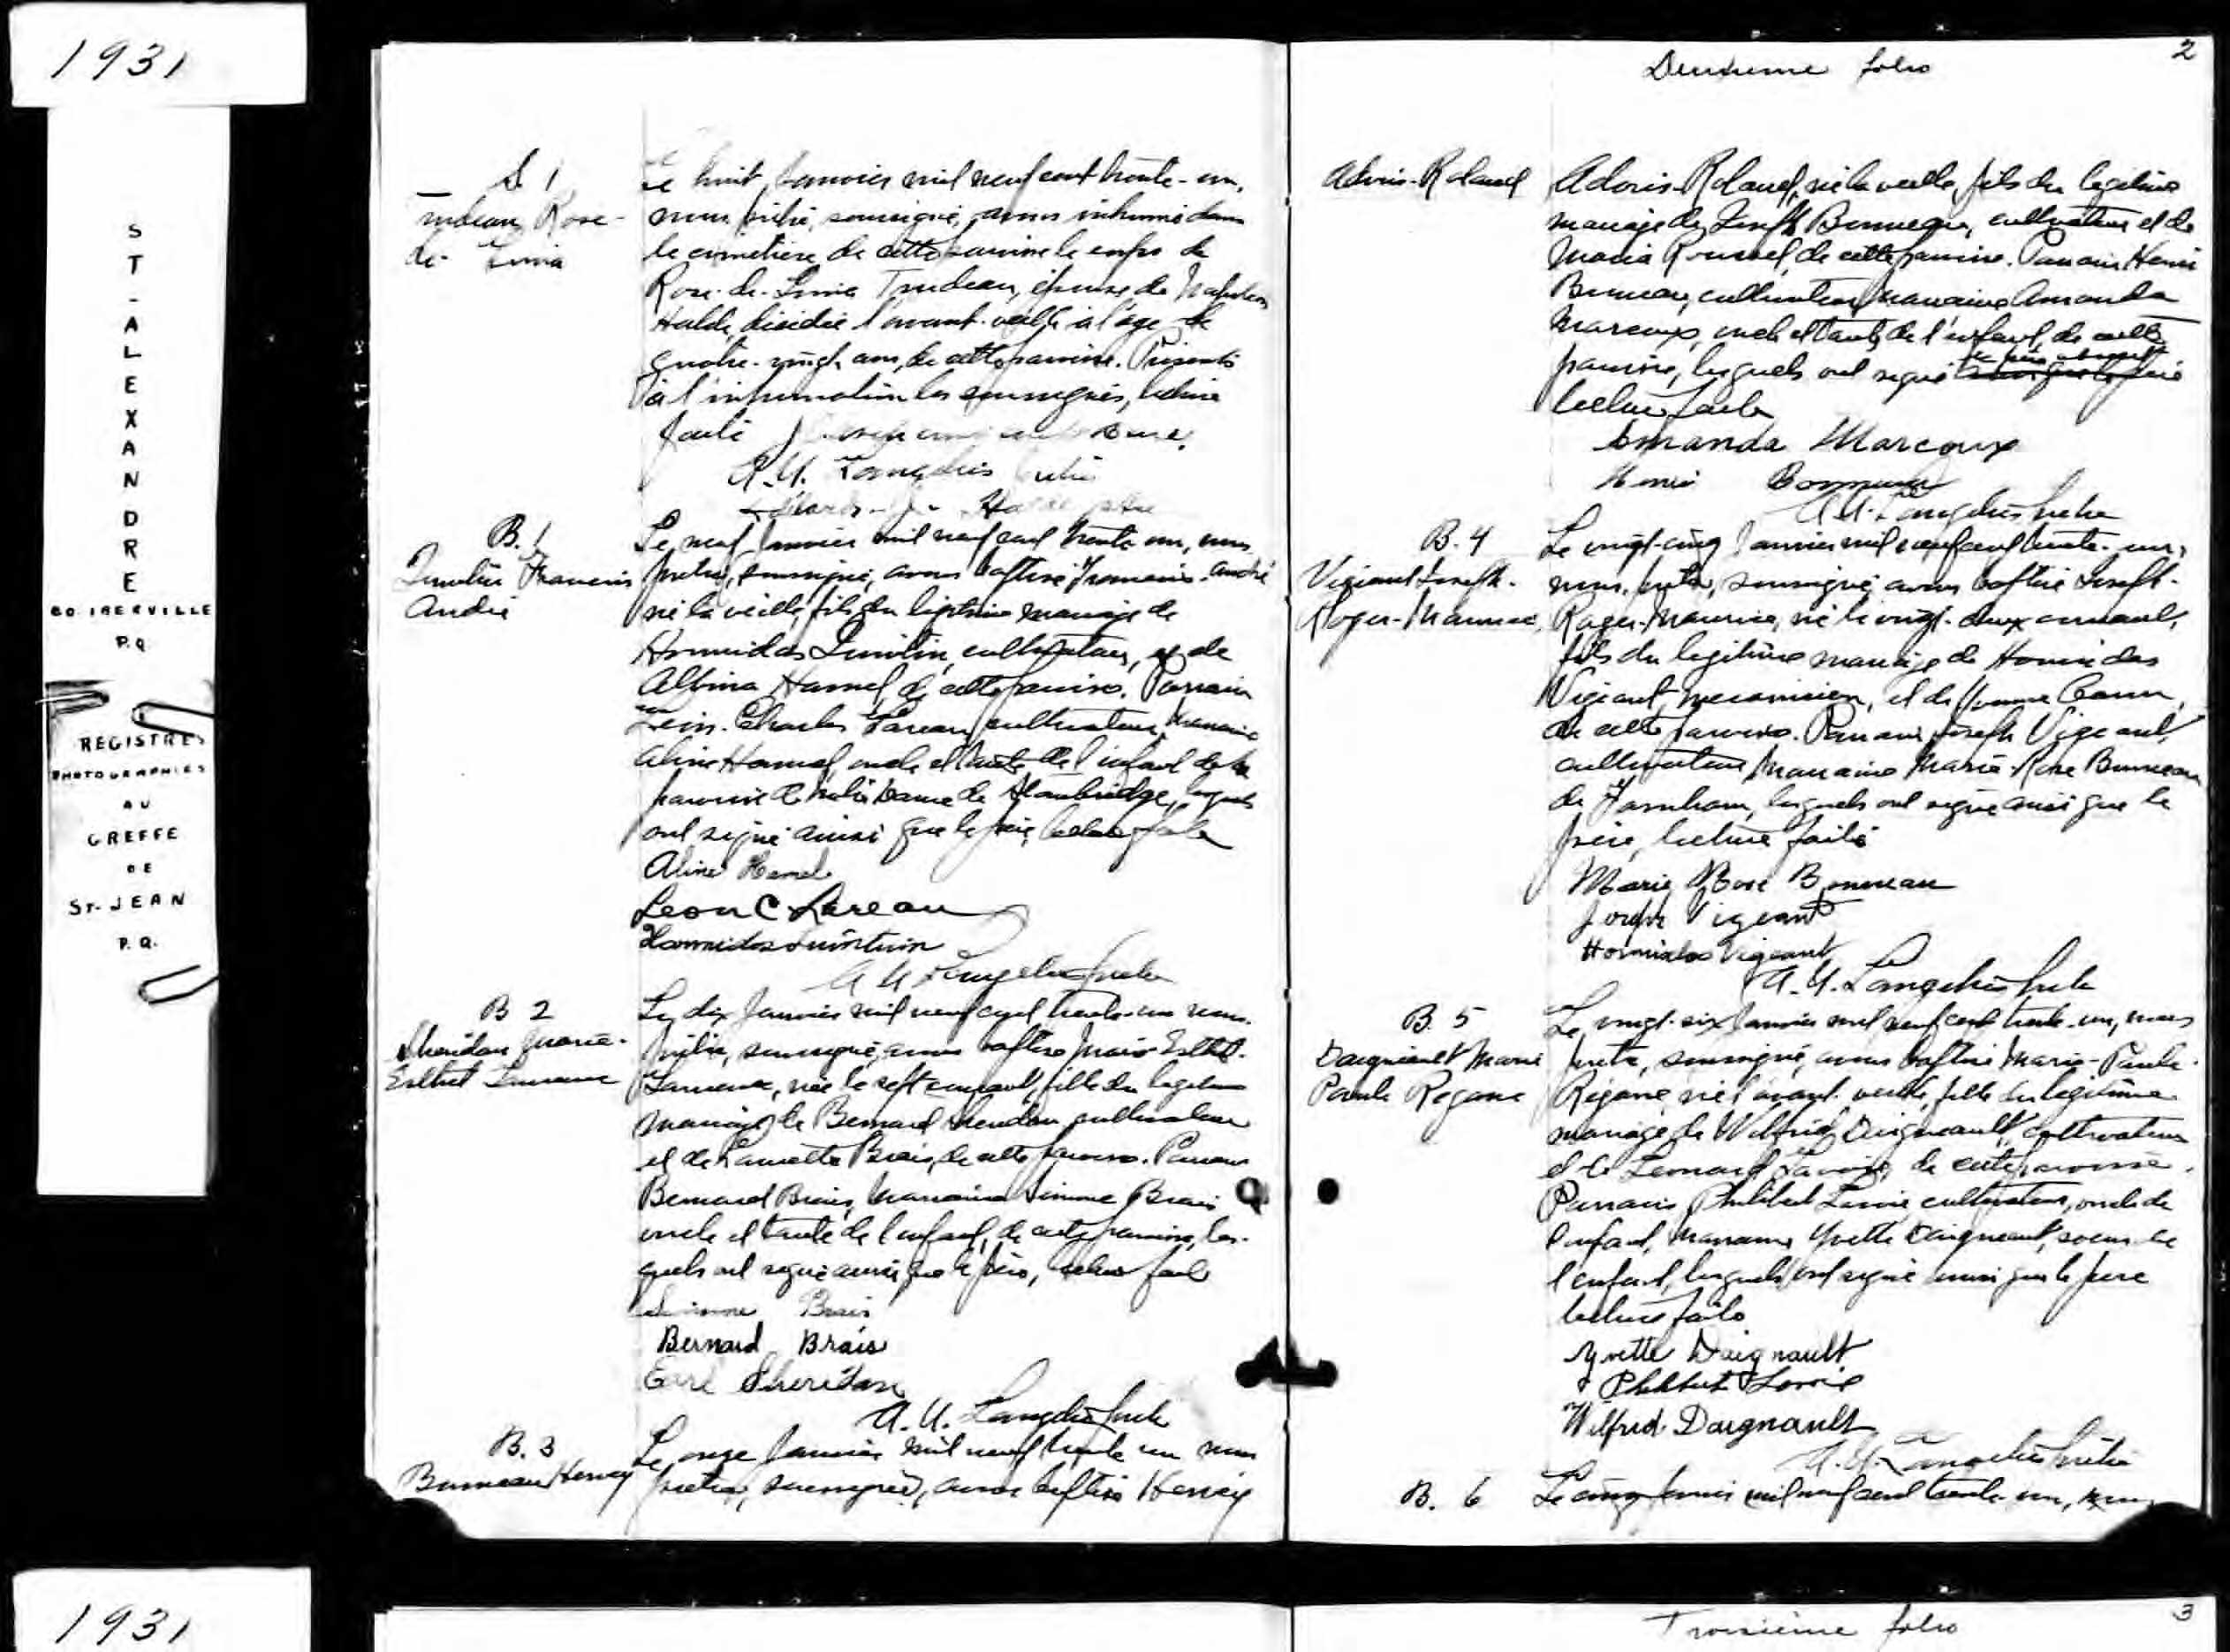 1931
ST-ALEXANDRE
CO. IBERVILLE
P.Q.
REGISTRES
PHOTOGRAPHIES
AU
GREFFE
DE
ST-JEAN
P.Q.
S 1
Rose-
de-Lima
Le huit janvier mil neuf cent trente-un,
nous, prêtre, soussigné, avons inhumé dans
le cimetière de cette paroisse le corps de
Rose-de-Lima Trudeau, épouse de Napoléon
Halde, décédée l'avant-veille à l'âge de
quatre-vingt ans, de cette paroisse. Présents
à l'inhumation les soussignés, lecture
faite
A.U. Langelier prêtre
B. 1
Quintin Francois
André
Le neuf janvier mil neuf cent trente un, nous
prêtre, soussigné, avons baptisé Francois-André
né la veille, fils du légitime mariage de
Hormidas Quintin, cultivateur, et de
Albina Hamel, de cette paroisse. Parrain
Léon-Charles Lareau, cultivateur, marraine
Aline Hamel, oncle et tante de l'enfant de la
paroisse de Notre Dame de Stanbridge, lesquels
ont signé ainsi que le père, lecture faite
Aline Hamel
Leon C Lareau
Hormidas Quintin
A U Langelier prêtre
B 2
Sheridan Marie-
Esther Laurence
Le dix janvier mil neuf cent trente-un nous
prêtre, soussigné, avons baptisé Marie Esther-
née le sept courant, fille du légitime
mariage de Bernard Sheridan cultivateur
et de Laurette Brais, de cette paroisse. Parrain
Bernard Brais, marraine Simone Brais
oncle et tante de l'enfant, de cette paroisse, les-
quels ont signé ainsi que le père, lecture faite
Simone Brais
Bernard Brais
Earl Sheridan
A.U. Langelier prêtre
B. 3
Bonneau Hervey
Le onze janvier mil neuf trente un nous
prêtre, soussigné, avons baptisé Hervey
Deuxieme folio
2
Adoris-Roland
Adoris-Roland, né la veille, fils du légitime
mariage de Joseph Bonneau, cultivateur et de
Maria Roussel, de cette paroisse. Parrain Henri
Bonneau, cultivateur, marraine Amanda
Marcoux, oncle et tante de l'enfant, de cette
paroisse, lesquels ont signé le père absent
lecture faite
Amanda Marcoux
Henri Bonneau
A U. Langelier prêtre
B. 4
Vigeant Joseph-
Roger-Maurice
Le vingt-cinq janvier mil neuf cent trente-un,
nous, prêtre, soussigné avons baptisé Joseph-
Roger-Maurice, né le vingt-deux courant,
fils du légitime mariage de Hormidas
Vigeant, mecanicien, et de Yvonne
de cette paroisse. Parrain Joseph Vigeant,
cultivateur, marraine Marie-Rose Bonneau
de Farnham, lesquels ont signé ainsi que le
père, lecture faite
Marie Rose Bonneau
Joseph Vigeant
Hormidas Vigeant
A.U. Langelier prêtre
B. 5
Daigneault Marie
Paule Rejane
Le vingt-six janvier mil neuf cent trente-un, nous
prêtre, soussigné, avons baptisé Marie-Paule-
Rejane, née l'avant-veille, fille du légitime
mariage de Wilfrid Daigneault, cultivateur
et de Lavoie, de cette paroisse.
Parrain Philibert Lavoie cultivateur, oncle de
l'enfant, marraine Yvette Daigneault, soeur de
l'enfant, lesquels ont signé ainsi que le père
lecture faite
Yvette Daignault
Philibert Lavoie
Wilfrid Daignault
A.U. Langelier prêtre
B. 6
Le cinq mil neuf cent trente-un, nous
1931
Troisième folio
3